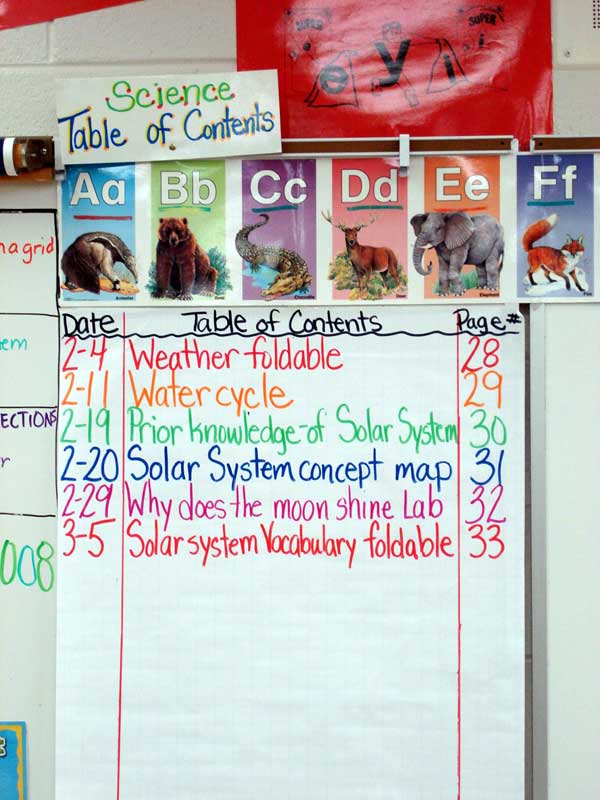 SUPER
SUPER
e y i
Science
Table of Contents
Aa Bb Cc Dd Ee Ff
Anteater Bear Crocodile Deer Elephant Fox
n a grid
ECTIONS
r
008
Date Table of Contents Page #
2-4 Weather foldable 28
2-11 Water cycle 29
2-19 Prior knowledge-of Solar System 30
2-20 Solar System concept map 31
2-29 Why does the moon shine Lab 32
3-5 Solar system Vocabulary foldable 33